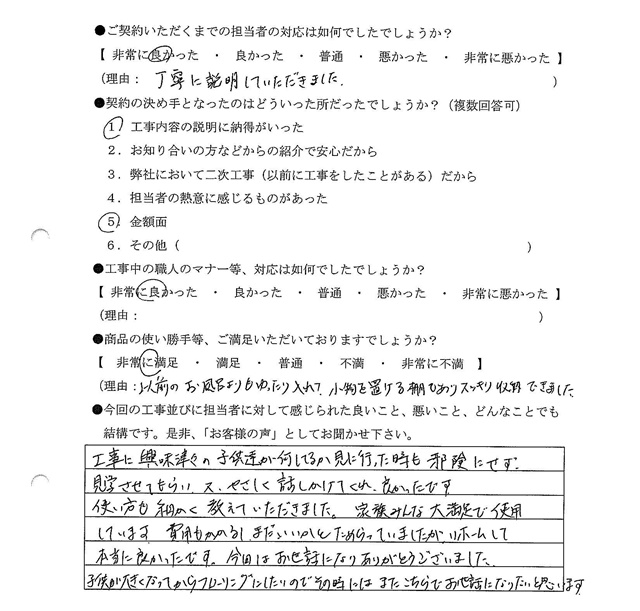 ●ご契約いただくまでの担当者の対応は如何でしたでしょうか？
【 非常に良かった ・ 良かった ・ 普通 ・ 悪かった ・ 非常に悪かった 】
（理由： 丁寧に説明していただきました。 ）
●契約の決め手となったのはどういった所だったでしょうか？（複数回答可）
1．工事内容の説明に納得がいった
2．お知り合いの方などからの紹介で安心だから
3．弊社において二次工事（以前に工事をしたことがある）だから
4．担当者の熱意に感じるものがあった
5．金額面
6．その他（ ）
●工事中の職人のマナー等、対応は如何でしたでしょうか？
【 非常に良かった ・ 良かった ・ 普通 ・ 悪かった ・ 非常に悪かった 】
（理由： ）
●商品の使い勝手等、ご満足いただいておりますでしょうか？
【 非常に満足 ・ 満足 ・ 普通 ・ 不満 ・ 非常に不満 】
（理由：以前のお風呂よりもゆったり入れて、小物を置ける棚もありスッキリ収納できました
●今回の工事並びに担当者に対して感じられた良いこと、悪いこと、どんなことでも
結構です。是非、「お客様の声」としてお聞かせ下さい。
工事に興味津々の子供達が何してるか見に行った時も邪険にせず、
見学させてもらい、又、やさしく話しかけてくれ、良かったです
使い方も細かく教えていただきました。家族みんな大満足で使用
しています。費用もかかるしまだいいかとためらっていましたがリホームして
本当に良かったです。今回はお世話になりありがとうございました。
子供が大きくなってからフローリングにしたいのでその時にはまたこちらでお世話になりたいと思います